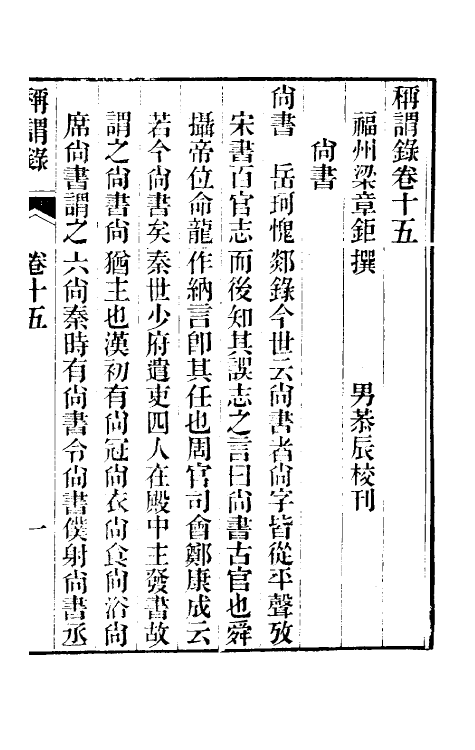 稱謂錄卷十五
福州梁章鉅撰　男恭辰校刊
尙書
尙書　岳珂愧郯錄今世云尙書者尙字皆從平聲攷
宋書百官志而後知其誤志之言曰尙書古官也舜
攝帝位命龍作納言卽其任也周官司會鄭康成云
若今尙書矣秦世少府遣吏四人在殿中主發書故
謂之尙書尙猶主也漢初有尙冠尙衣尙食尙浴尙
席尙書謂之六尙秦時有尙書令尙書僕射尙書丞
稱謂錄　卷十五　一